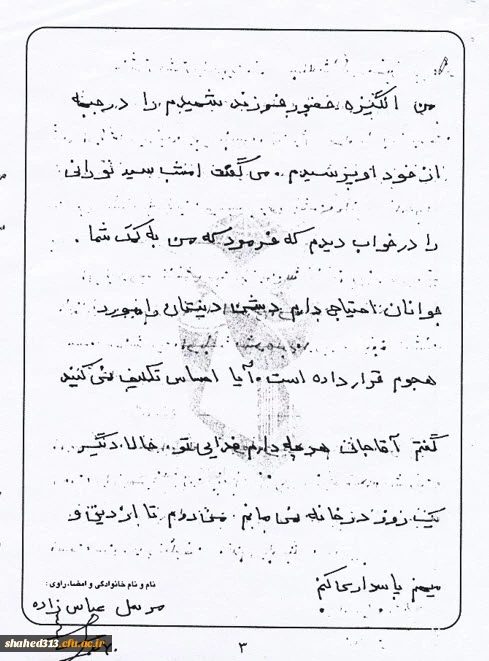 من انگیزه حضور فرزند شهیدم را در جبهه
از خود او پرسیدم . می گفت امشب سید نورانی
را در خواب دیدم که فرمود که من به کمک شما .
جوانان احتیاجی دارم دشمن دینتان را مورد
هجوم قرار داده است . آیا احساس تکلیف نمی کنید
گفتم آقاجانی هر چه دارم فدایی تو . حالا دیگر
یک روز در خانه نمی مانم می روم تا از دین و
میهنم پاسداری کنم
نام و نام خانوادگی و امضاء راوی :
مرسل عباس زاده
shahed313.cfu.ac.ir
۳